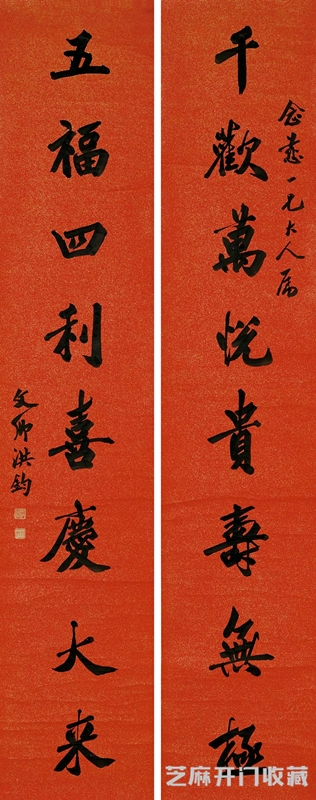 千歡萬悅貴壽無極
仁兄大人屬
五福四利喜慶大来
文卿洪鈞
芝麻开门收藏